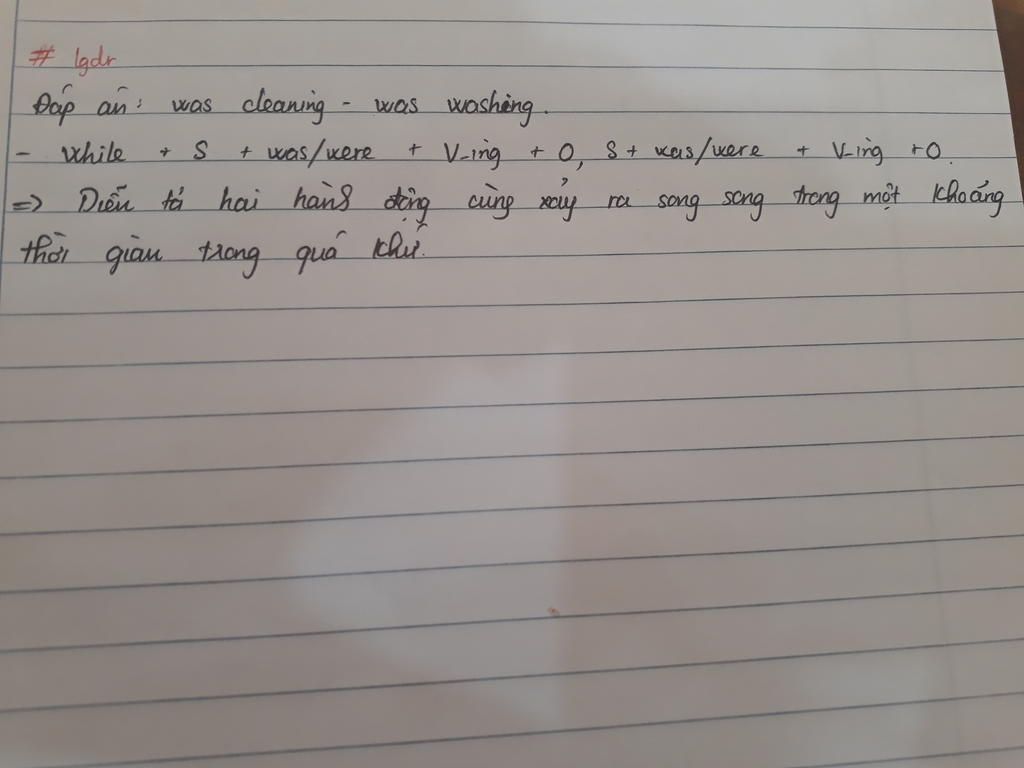 # lgdr
Đáp án: was cleaning - was washing.
- While + S + was/were + V-ing + O, S + was/were + V-ing + O.
=> Diễn tả hai hành động cùng xảy ra song song trong một khoảng
thời gian trong quá khứ.